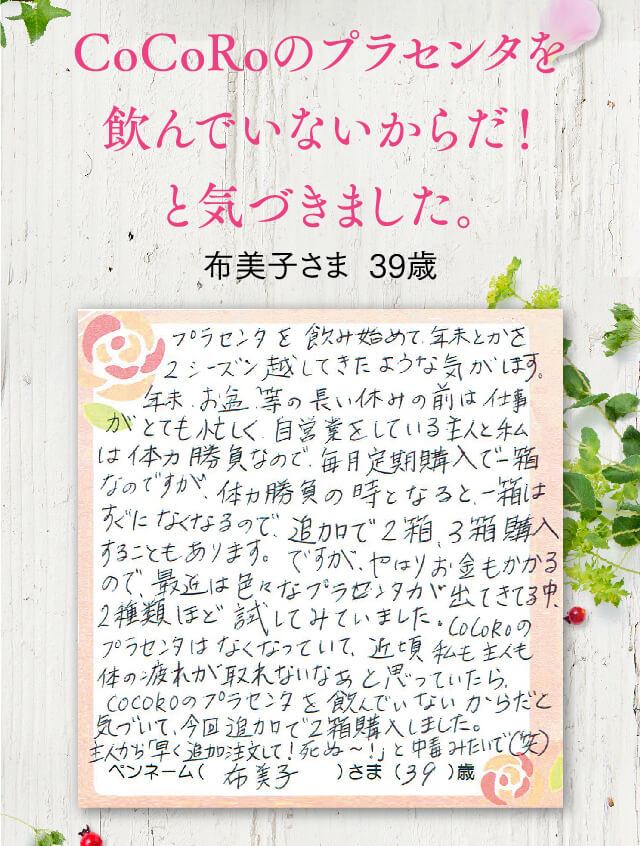 CoCoRoのプラセンタを
飲んでいないからだ！
と気づきました。
布美子さま 39歳
プラセンタを飲み始めて、年末とかを
2シーズン越してきたような気がします。
年末、お盆、等の長い休みの前は仕事
がとても忙しく、自営業をしている主人と私
は体力勝負なので、毎月定期購入で一箱
なのですが、体力勝負の時となると、一箱は
すぐになくなるので、追加で2箱、3箱購入
することもあります。ですが、やはりお金もかかる
ので、最近は色々なプラセンタが出てきてる中、
2種類ほど試してみていました。CoCoRoの
プラセンタはなくなっていて、近頃私も主人も
体の疲れが取れないなぁと思っていたら、
COCOROのプラセンタを飲んでいないからだと
気づいて、今回追加で2箱購入しました。
主人から「早く追加注文して!死ぬ〜!」と中毒みたいで(笑)
ペンネーム( 布美子 )さま(39)歳